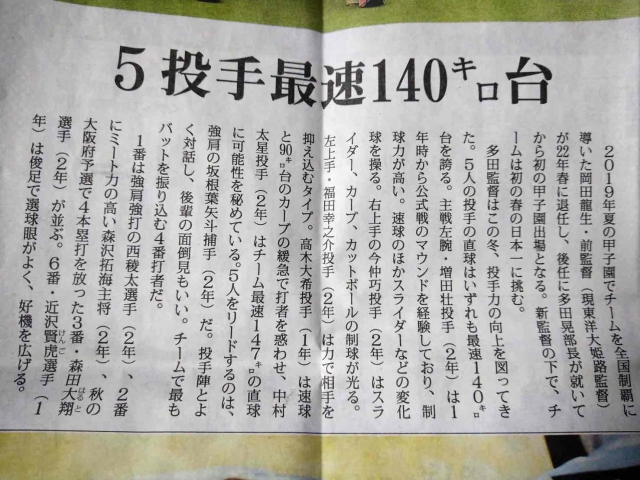 5投手最速140㌔台
　2019年夏の甲子園でチームを全国制覇に
導いた岡田龍生・前監督（現東洋大姫路監督）
が22年春に退任し、後任に多田晃部長が就いて
から初の甲子園出場となる。新監督の下で、チ
ームは初の春の日本一に挑む。
　多田監督はこの冬、投手力の向上を図ってき
た。5人の投手の直球はいずれも最速140㌔
台を誇る。主戦左腕・増田壮投手（2年）は1
年時から公式戦のマウンドを経験しており、制
球力が高い。速球のほかスライダーなどの変化
球を操る。右上手の今仲巧投手（2年）はスラ
イダー、カーブ、カットボールの制球が光る。
左上手・福田幸之介投手（2年）は力で相手を
抑え込むタイプ。高木大希投手（1年）は速球
と90㌔台のカーブの緩急で打者を惑わせ、中村
太星投手（2年）はチーム最速147㌔の直球
に可能性を秘めている。5人をリードするのは、
強肩の坂根葉矢斗捕手（2年）だ。投手陣とよ
く対話し、後輩の面倒見もいい。チームで最も
バットを振り込む4番打者だ。
　1番は強肩強打の西稜太選手（2年）、2番
にミート力の高い森沢拓海主将（2年）、秋の
大阪府予選で4本塁打を放った3番・森田大翔
はると
選手（2年）が並ぶ。6番・近沢賢虎選手（1
けんご
年）は俊足で選球眼がよく、好機を広げる。